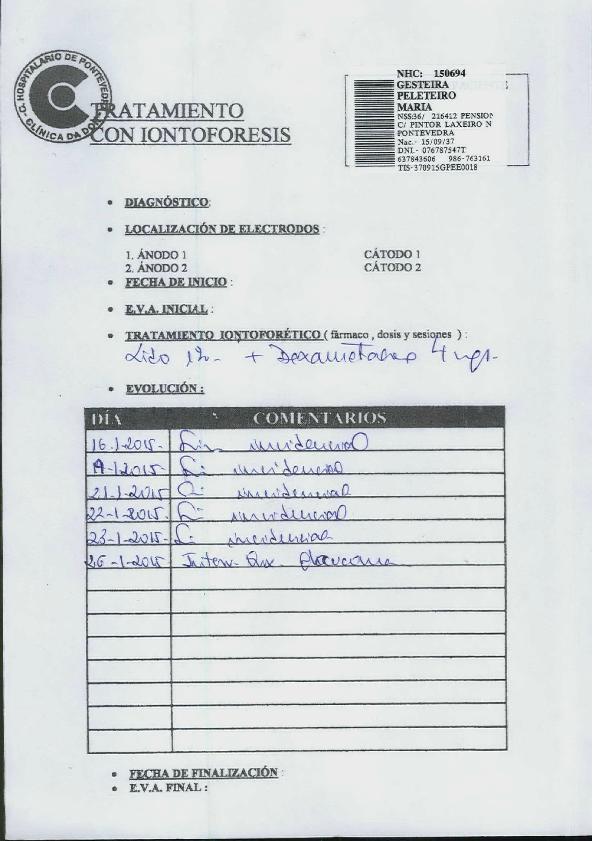 C. HOSPITALARIO DE PONTEVEDRA
- CLÍNICA DA DOR
TRATAMIENTO
CON IONTOFORESIS
NHC: 150694
GESTEIRA
PELETEIRO
MARIA
NSS:36/ 216412 PENSION
C/ PINTOR LAXEIRO N
PONTEVEDRA
Nac.- 15/09/37
DNI.- 076787547T
637843606 986-763161
TIS-370915GPEE0018
• DIAGNÓSTICO:
• LOCALIZACIÓN DE ELECTRODOS :
1. ÁNODO 1 CÁTODO 1
2. ÁNODO 2 CÁTODO 2
• FECHA DE INICIO :
• E.V.A. INICIAL :
• TRATAMIENTO IONTOFORÉTICO ( fármaco , dosis y sesiones ) :
Lido + Dexametasona 4 mgr-
• EVOLUCIÓN :
DÍA COMENTARIOS
16-1-2015- Sin incidencias
-1-2015- Sin incidencias
21-1-2015- Sin incidencias
22-1-2015- Sin incidencias
23-1-2015- Sin incidencias
26-1-2015- Interv. Qx. Glaucoma
• FECHA DE FINALIZACIÓN :
• E.V.A. FINAL :